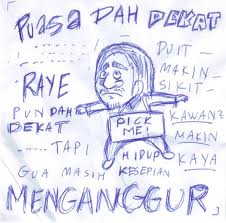 PUASA DAH DEKAT
RAYE
PUN DAH
DEKAT
TAPI
GUA MASIH
DUIT
MAKIN
SIKIT
KAWAN2
MAKIN
KAYA
PICK
ME!
HIDUP
KESEPIAN
MENGANGGUR